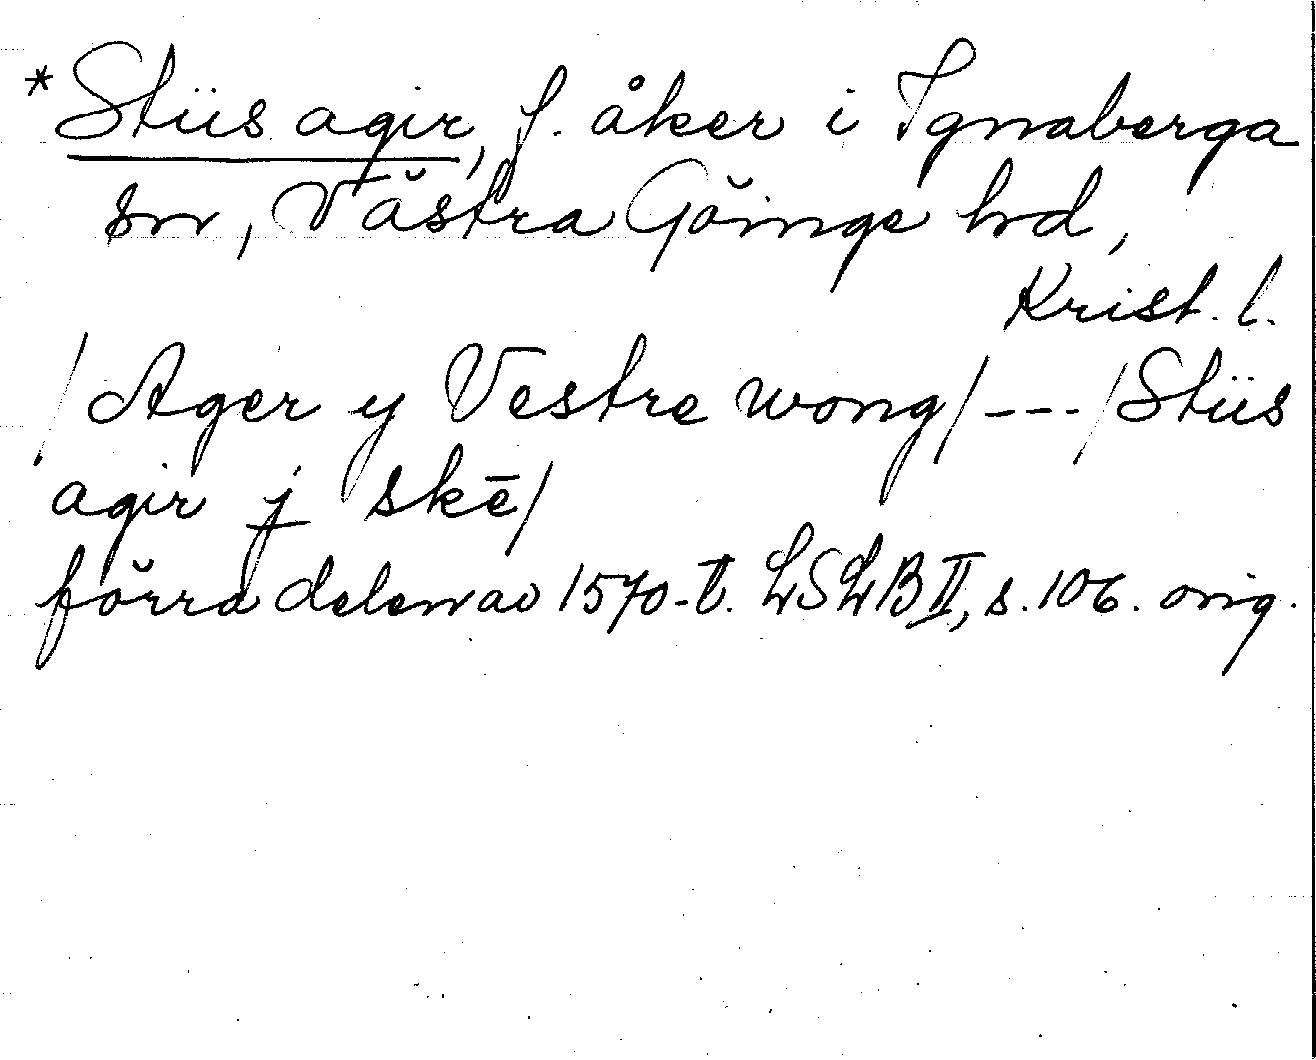 *Stüs agir, f. åker i Ignaberga
sn, Västra Göinge hd,
Krist. l.
/Ager y Vestre wong/---/Stüs
agir j skē/
förra delen av 1570-t. LSLB II, s. 106. orig.